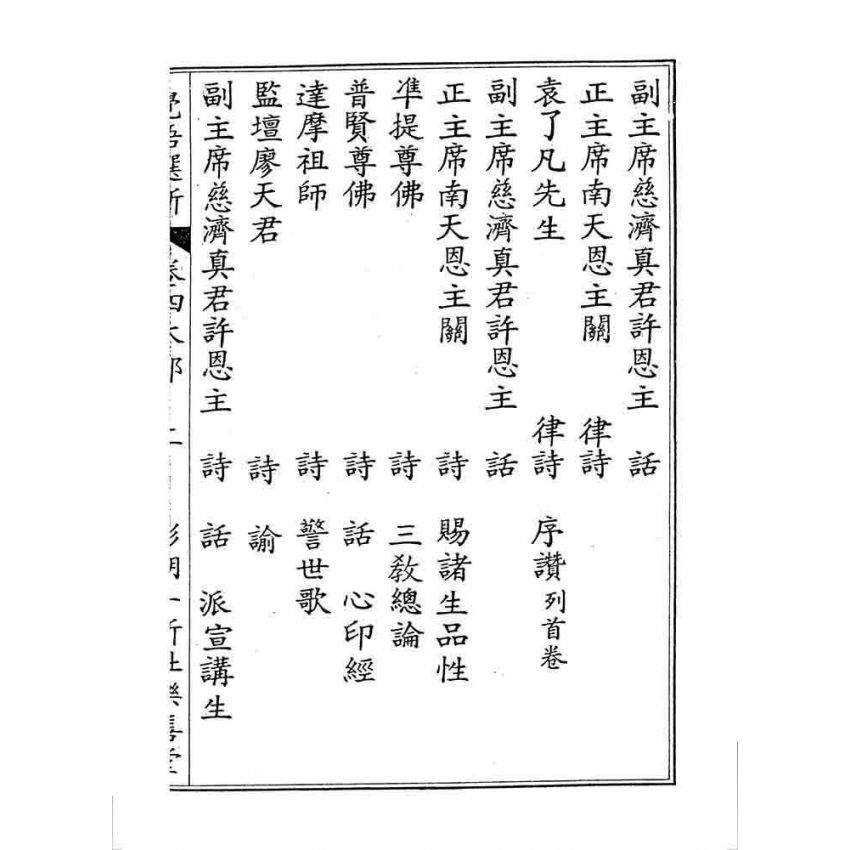 副主席慈濟真君許恩主 話
正主席南天恩主關 律詩
袁了凡先生 律詩 序讚列首卷
副主席慈濟真君許恩主 話
正主席南天恩主關 詩 賜諸生品性
準提尊佛 詩 三教總論
普賢尊佛 詩 話 心印經
達摩祖師 詩 警世歌
監壇廖天君 詩 諭
副主席慈濟真君許恩主 詩 話 派宣講生
卷四 二